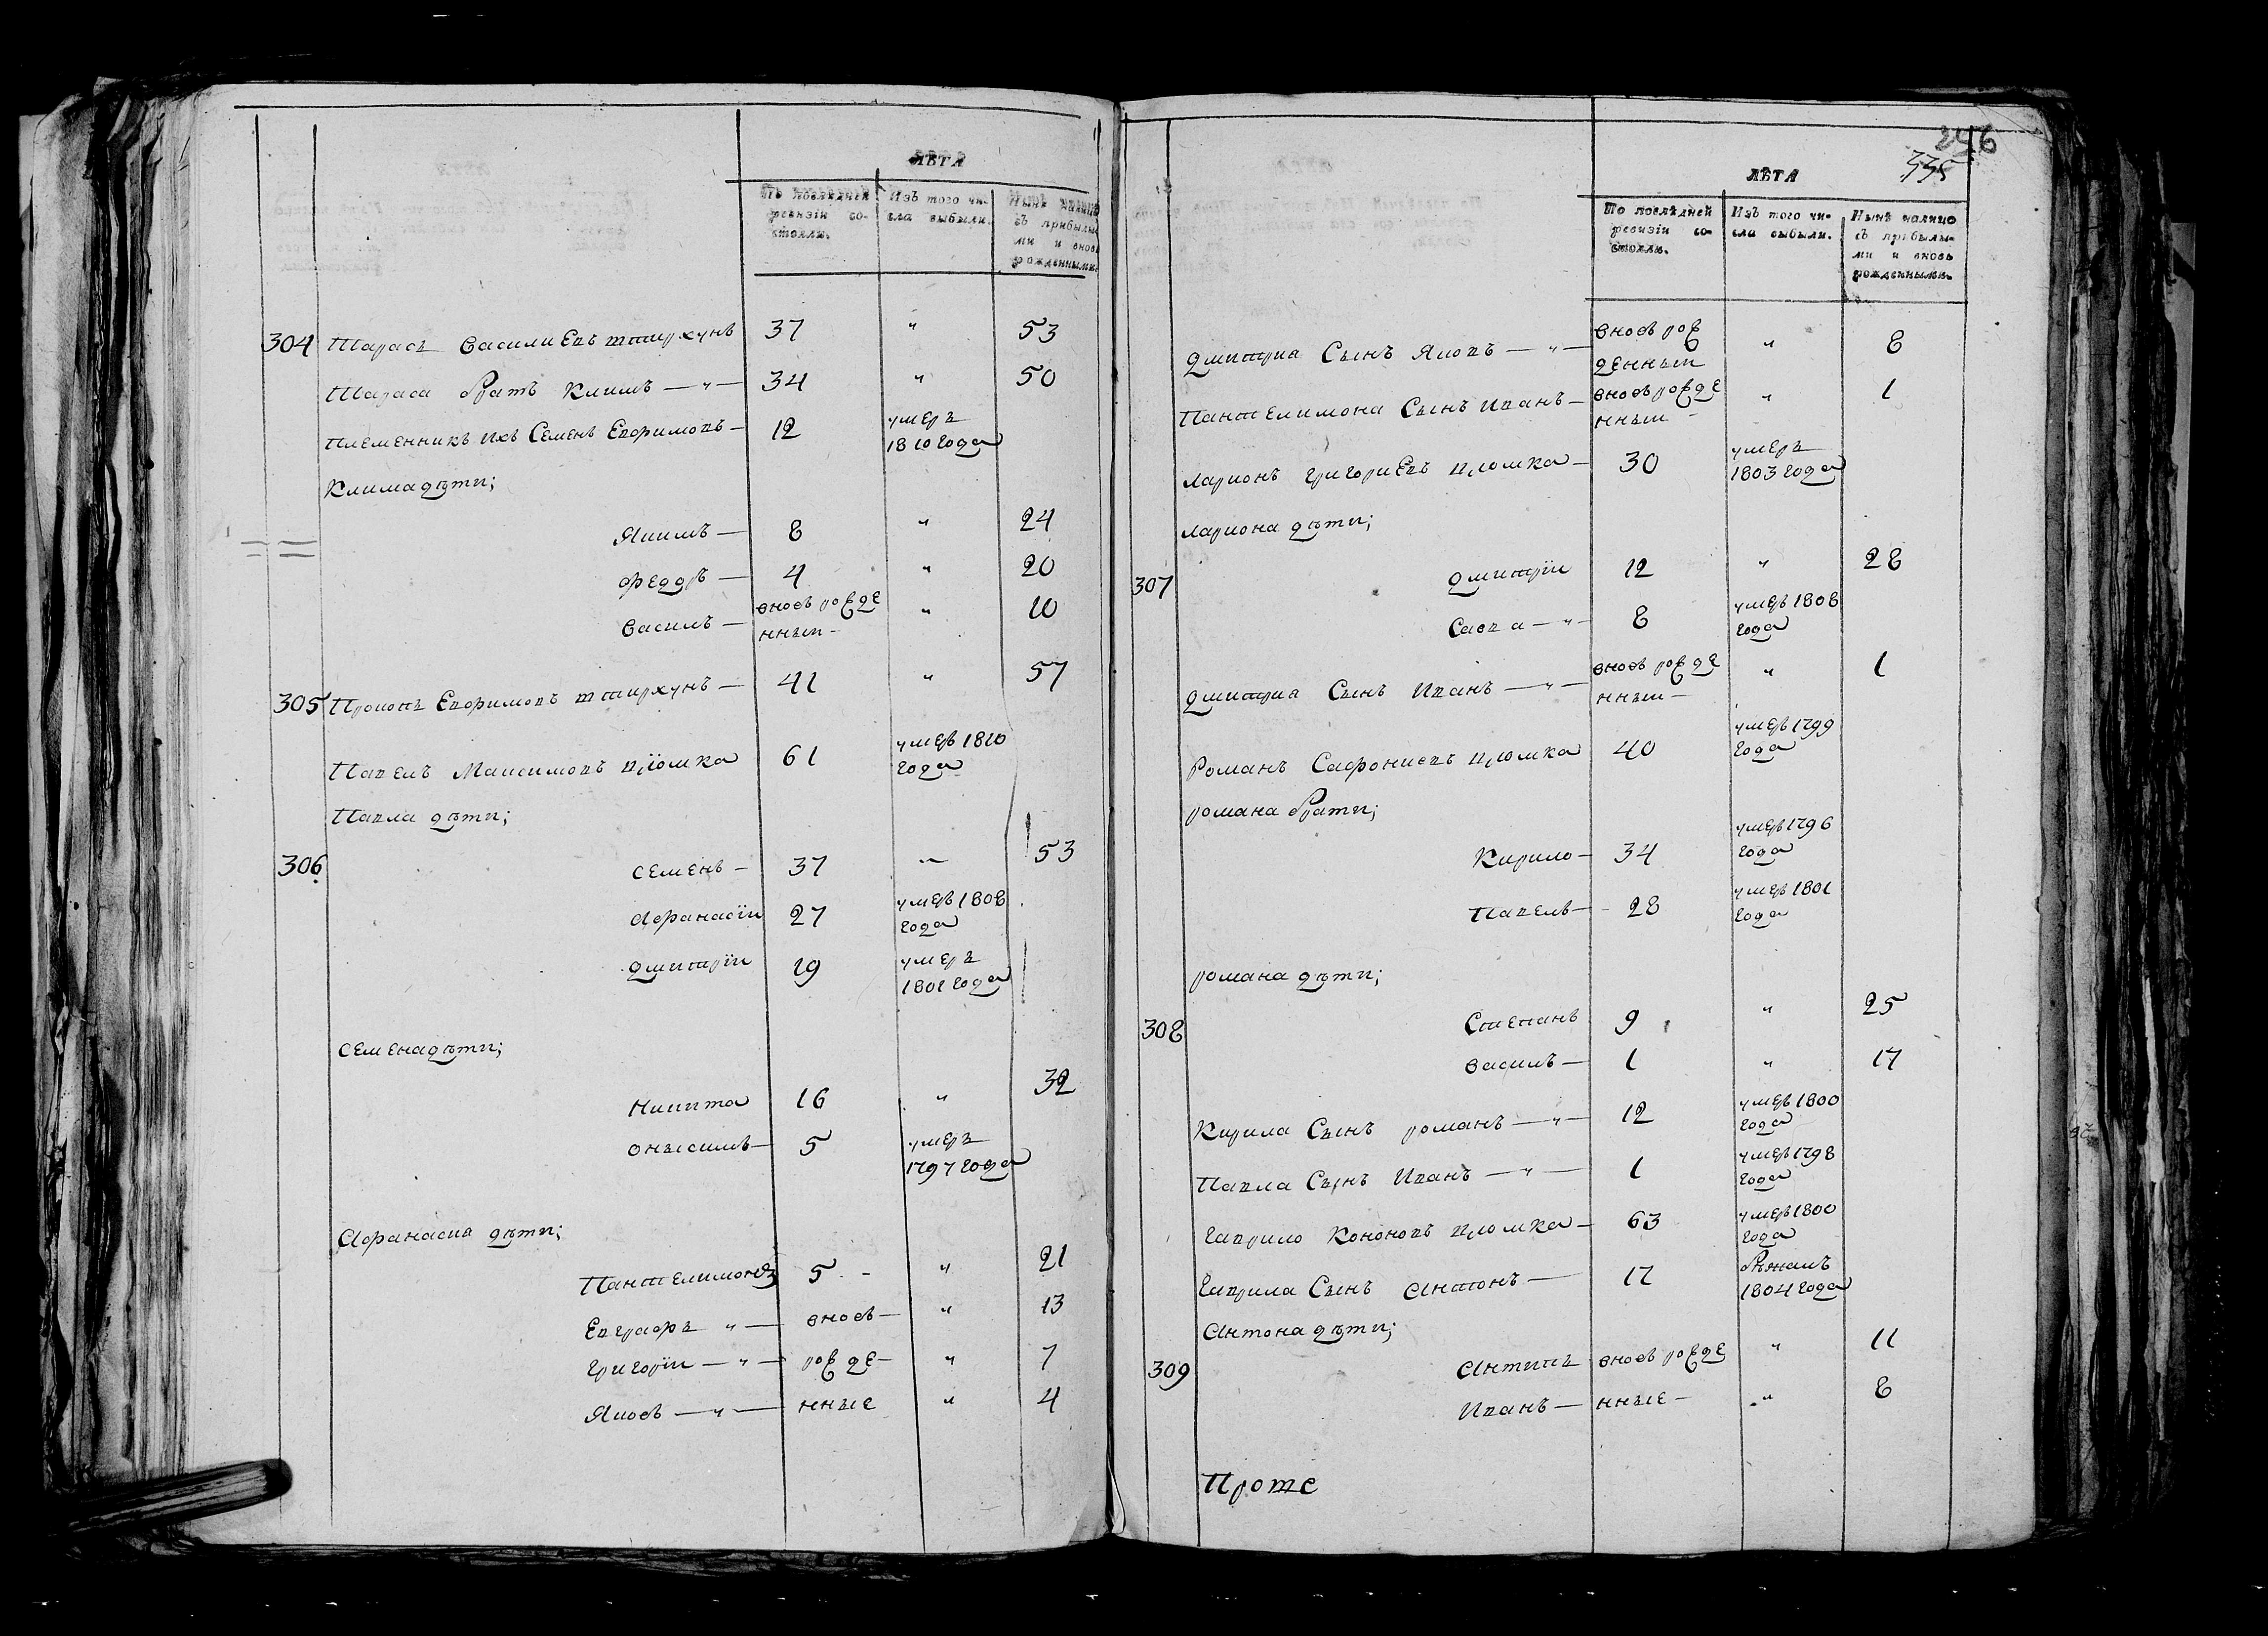 ЛѢТА
По послѣдней ревизіи состояли.
Изъ того числа выбыли.
Нынѣ налицо съ прибылыми и вновь рожденными.
304 Тарасъ Василиевъ 37 " 53
Тараса братъ Климъ — " — 34 " 50
Племенникъ ихъ Семенъ Евфимовъ — 12 умеръ 1810 года
Клима дѣти;
Якимъ — 8 " 24
Федоръ — 4 " 20
Василь — вновь рожденный — " 10
305 Прокопъ Евфимовъ — 41 " 57
Павелъ Максимовъ 61 умеръ 1810 года
Павла дѣти;
306 Семенъ — 37 " 53
Афанасій 27 умеръ 1808 года
Дмитрій 19 умеръ 1801 года
Семена дѣти;
Никита 16 " 32
Онысимъ — 5 умеръ 1797 года
Афанасиа дѣти;
Пантелимонъ 5 - " 21
Евграфъ " — вновь — " 13
Григорій — " — рожде- " 7
Яковъ — " — нные " 4
246
335
ЛѢТА
По послѣдней ревизіи состояли.
Изъ того числа выбыли.
Нынѣ налицо съ прибылыми и вновь рожденными.
Дмитриа Сынъ Яковъ — " — вновь рожденный " 8
Пантелимона Сынъ Иванъ — вновь рожденный — " 1
Ларионъ Григориевъ — 30 умеръ 1803 года
Лариона дѣти;
307 Дмитрій 12 " 28
Савва — " — 8 умеръ 1808 года
Дмитриа Сынъ Иванъ — " — вновь рожденный — " 1
Романъ Сафониевъ 40 умеръ 1799 года
Романа брати;
Кирило — 34 умеръ 1796 года
Павелъ — 28 умеръ 1801 года
Романа дѣти;
308 Степанъ 9 " 25
Василь — 1 " 17
Кирила Сынъ Романъ — " — 12 умеръ 1800 года
Павла Сынъ Иванъ — " — 1 умеръ 1798 года
Гаврило Кононовъ — 63 умеръ 1800 года
Гаврила Сынъ Антонъ — 17 бѣжалъ 1804 года
Антона дѣти;
309 Антипъ вновь рожде " 11
Иванъ — нные — " 8
Проте